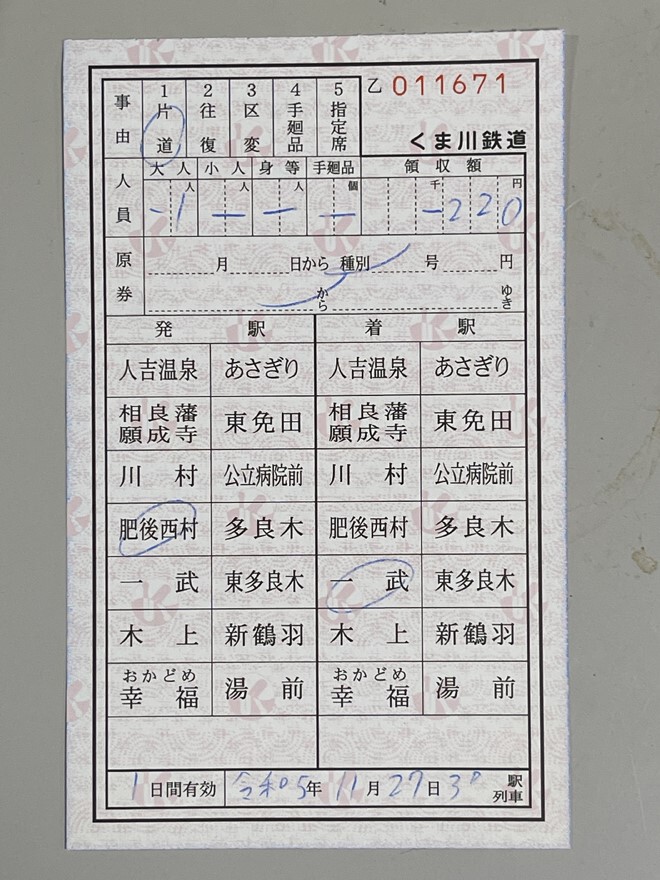 乙 011671
くま川鉄道
事由 1片道 2往復 3区変 4手廻品 5指定席
人員 大人 小人 身等 手廻品 領収額
人 人 人 個 千 円
-1 - - - -220
原券 月 日から 種別 号 円
から ゆき
発駅 着駅
人吉温泉 あさぎり 人吉温泉 あさぎり
相良藩願成寺 東免田 相良藩願成寺 東免田
川村 公立病院前 川村 公立病院前
肥後西村 多良木 肥後西村 多良木
一武 東多良木 一武 東多良木
木上 新鶴羽 木上 新鶴羽
おかどめ幸福 湯前 おかどめ幸福 湯前
1日間有効 令和05年 11月27日 駅列車